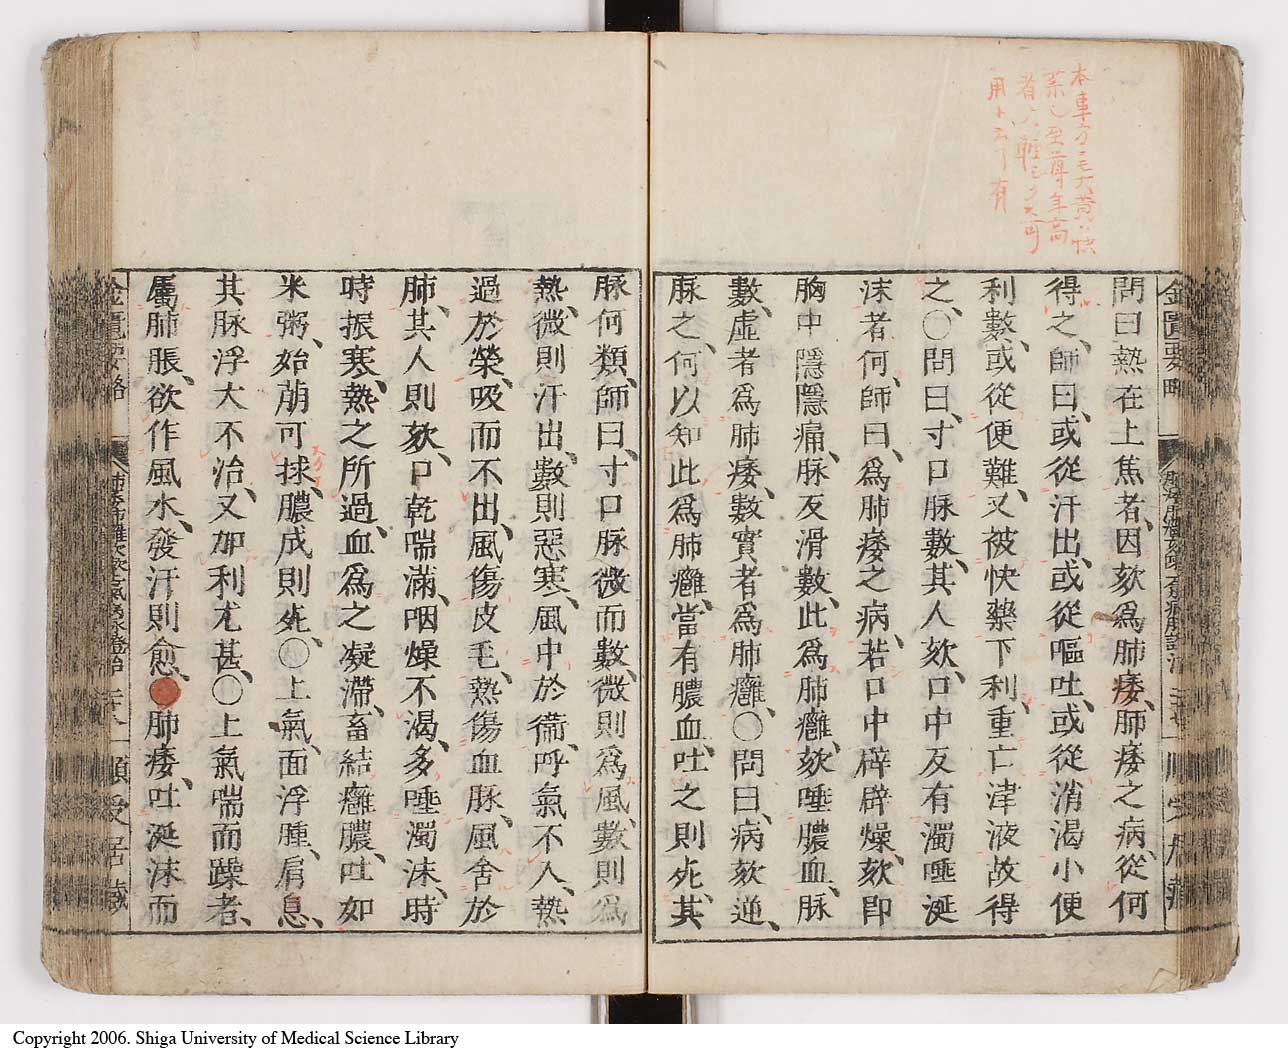 本章方ニモ大黄ハ快
薬也至尊年高
者ハ軽シク不可
用ト云フ有
金匱要略
順受居蔵
問曰熱在上焦者、因欬爲肺痿、肺痿之病、從何
得之、師曰、或從汗出、或從嘔吐、或從消渇小便
利數、或從便難、又被快藥下利、重亡津液故得
之、〇問曰、寸口脉數、其人欬、口中反有濁唾涎
沫者何、師曰、爲肺痿之病、若口中辟辟燥、欬即
胸中隱隱痛、脉反滑數、此爲肺癰、欬唾膿血、脉
數、虛者爲肺痿、數實者爲肺癰〇問曰、病欬逆、
脉之、何以知此爲肺癰、當有膿血、吐之則死、其
脉何類、師曰、寸口脉微而數、微則爲風、數則爲
熱、微則汗出、數則惡寒、風中於衞、呼氣不入、熱
過於榮、吸而不出、風傷皮毛、熱傷血脉、風舍於
肺、其人則欬、口乾喘滿、咽燥不渴、多唾濁沫、時
時振寒、熱之所過、血爲之凝滯、畜結癰膿、吐如
米粥、始萠可捄、膿成則死〇上氣、面浮腫、肩息、
其脉浮大不治、又加利尤甚、〇上氣喘而躁者、
屬肺脹、欲作風水、發汗則愈、●肺痿、吐涎沫而
金匱要略
順受居蔵